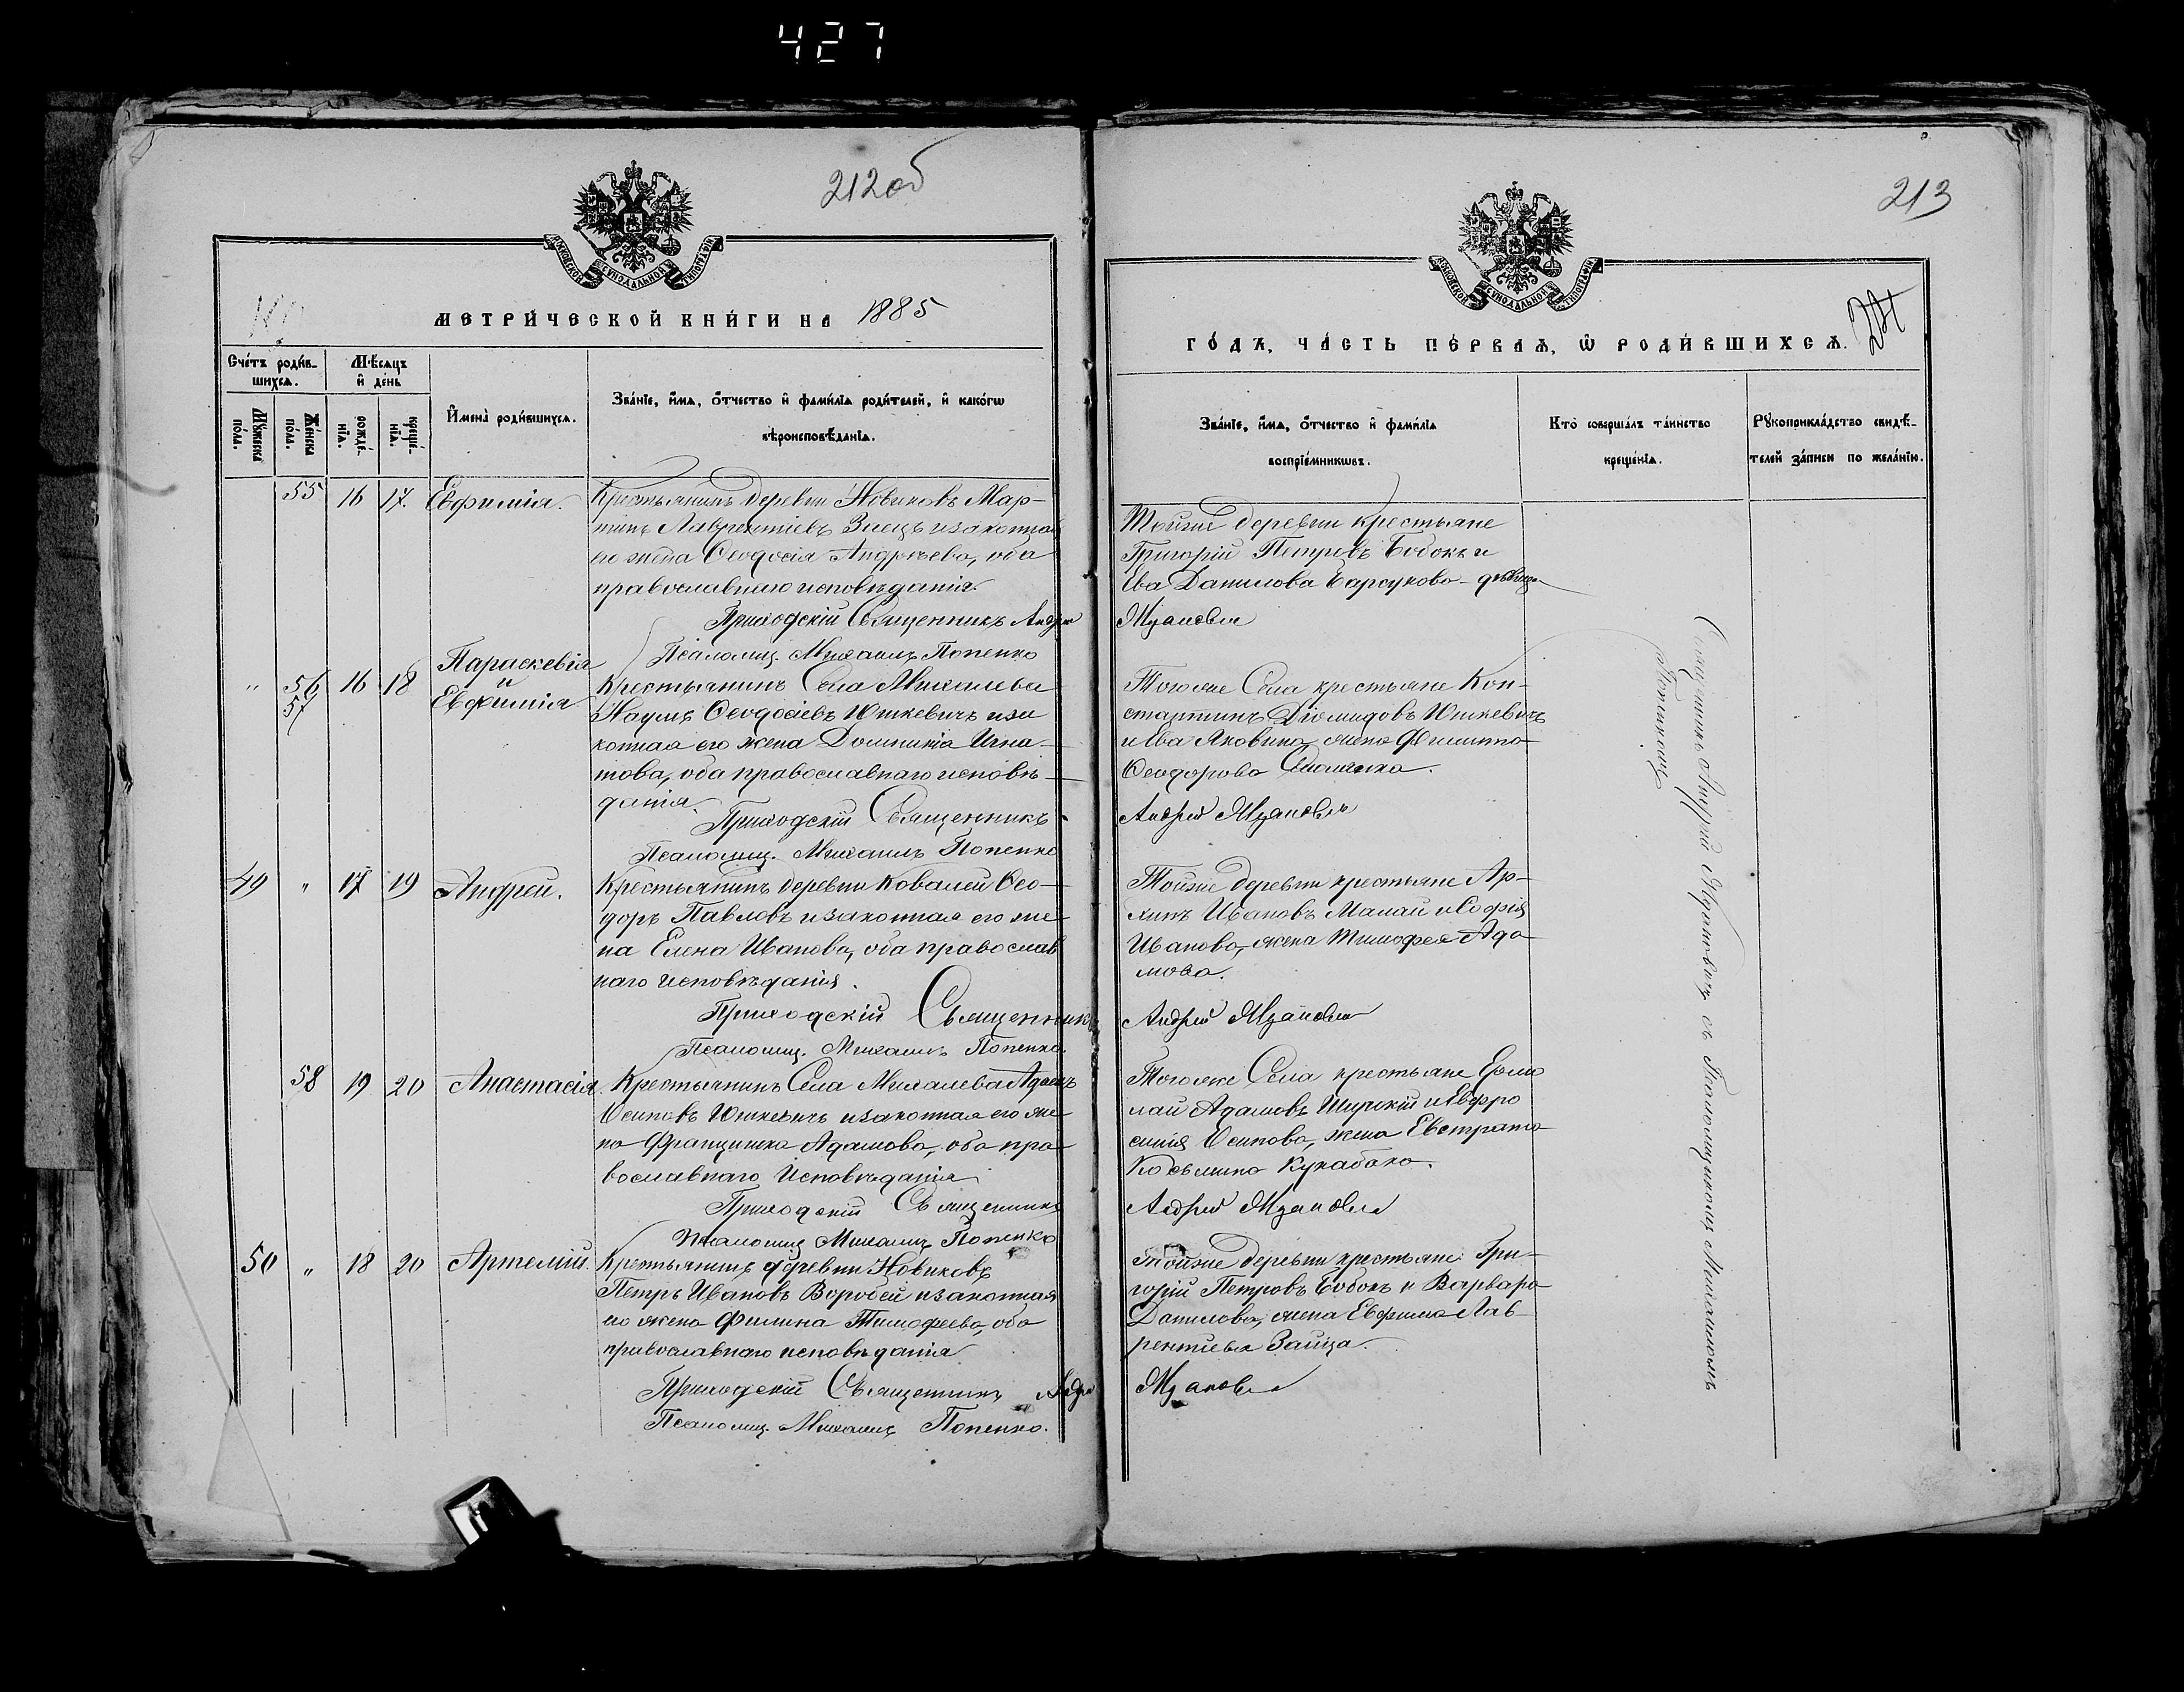 427
212об
МЕТРИ́ЧЕСКОЙ КНИ́ГИ НА 1885
Сче́тъ роди́в-
шихсѧ.
Мѣ́сѧцъ
и҆ де́нь
Мꙋ́жеска
по́ла.
Же́нска
по́ла.
рожде́-
нїѧ.
креще́-
нїѧ.
И҆мена̀ роди́вшихсѧ.
Зва́нїе, и҆́мѧ, ѻ҆́тчество и҆ фами́лїѧ роди́телей, и҆ како́гѡ
вѣроисповѣ́данїѧ.
55 16 17. Евфимія.
Крестьянинъ деревни Новиковъ Мар-
тинъ Лаврентіевъ Заецъ и законная
его жена Ѳеодосія Андреева, оба
православнаго исповѣданія.
Приходскій Священникъ Андрей
Псаломщ. Михаилъ Попенко
" 56 57 16 18 Параскевія
и
Евфимія
Крестьянинъ Села Михалева
Наумъ Ѳеодосіевъ Юшкевичъ и за
конная его жена Домникія Игна-
това, оба православнаго исповѣ-
данія.
Приходскій Священникъ
Псаломщ. Михаилъ Попенко
49 " 17 19 Андрей.
Крестьянинъ деревни Ковалей Ѳео-
доръ Павловъ и законная его же-
на Елена Иванова, оба православ
наго исповѣданія.
Приходскій Священникъ
Псаломщ. Михаилъ Попенко.
58 19 20 Анастасія.
Крестьянинъ Села Михалева Адамъ
Осиповъ Юшкевичъ и законная его же-
на Францишка Адамова, оба пра-
вославнаго Исповѣданія
Приходскій Священникъ
Псаломщ Михаилъ Попенко
50 " 18 20 Артемій.
Крестьянинъ деревни Новиковъ
Петръ Ивановъ Воробей и законная
его жена Фекина Тимофеева, оба
православнаго исповѣданія
Приходскій Священникъ Андрей
Псаломщ. Михаилъ Попенко.
213
ГО́ДЪ, ЧА́СТЬ ПЕ́РВАѦ, Ѡ҆ РОДИ́ВШИХСѦ.
Зва́нїе, и҆́мѧ, ѻ҆́тчество и҆ фами́лїѧ
воспрїе́мникѡвъ.
Кто̀ соверша́лъ та́инство
креще́нїѧ.
Рꙋкоприкла́дство свидѣ́-
телей за́писи по жела́нїю.
Тойже деревни крестьяне
Григорій Петровъ Бобокъ и
Ева Данилова Барсукова - дѣвица
Тогоже Села крестьяне Кон-
стантинъ Діомидовъ Юшкевичъ
и Ева Яковина, жена Филиппа
Ѳеодорова
Андрей
Тойже деревни крестьяне Ар-
хипъ Ивановъ Малай и Софія
Иванова, жена Тимофея Ада-
мова.
Андрей
Тогоже Села крестьяне Ермо
лай Адамовъ Шурскій и Евфро
синія Осипова, жена Евстратія
Косьмина Кулабако.
Андрей
Тойже деревни крестьяне Гри-
горій Петровъ Бобокъ и Варвара
Данилова, жена Евфима Лав-
рентіева Зайца.
Священникъ Андрей съ Псаломщикомъ Михаиломъ
Попенкомъ